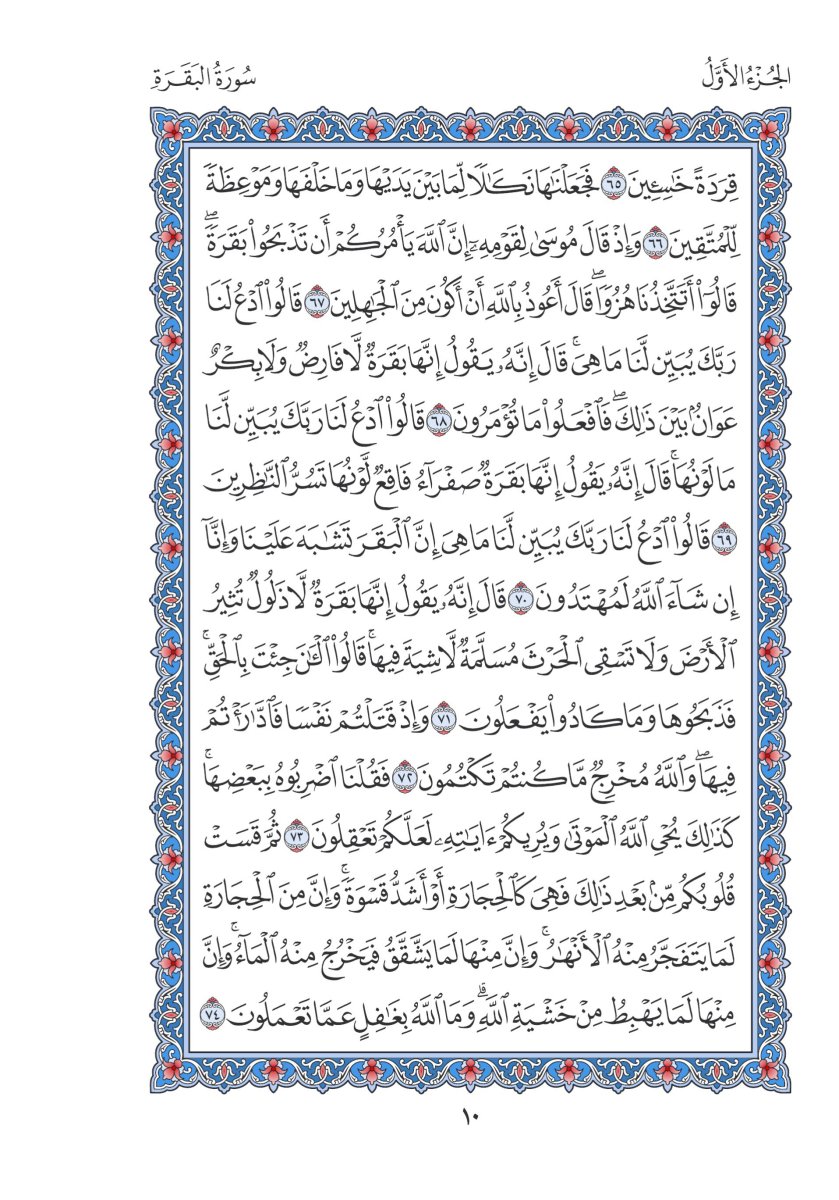 الجُزْءُ الأَوَّلُ
سُورَةُ البَقَرَةِ
قِرَدَةً خَٰسِـِٔينَ ٦٥ فَجَعَلْنَٰهَا نَكَٰلًا لِّمَا بَيْنَ يَدَيْهَا وَمَا خَلْفَهَا وَمَوْعِظَةً
لِّلْمُتَّقِينَ ٦٦ وَإِذْ قَالَ مُوسَىٰ لِقَوْمِهِۦٓ إِنَّ ٱللَّهَ يَأْمُرُكُمْ أَن تَذْبَحُوا۟ بَقَرَةً ۖ
قَالُوٓا۟ أَتَتَّخِذُنَا هُزُوًا ۖ قَالَ أَعُوذُ بِٱللَّهِ أَنْ أَكُونَ مِنَ ٱلْجَٰهِلِينَ ٦٧ قَالُوا۟ ٱدْعُ لَنَا
رَبَّكَ يُبَيِّن لَّنَا مَا هِىَ ۚ قَالَ إِنَّهُۥ يَقُولُ إِنَّهَا بَقَرَةٌ لَّا فَارِضٌ وَلَا بِكْرٌ
عَوَانٌۢ بَيْنَ ذَٰلِكَ ۖ فَٱفْعَلُوا۟ مَا تُؤْمَرُونَ ٦٨ قَالُوا۟ ٱدْعُ لَنَا رَبَّكَ يُبَيِّن لَّنَا
مَا لَوْنُهَا ۚ قَالَ إِنَّهُۥ يَقُولُ إِنَّهَا بَقَرَةٌ صَفْرَآءُ فَاقِعٌ لَّوْنُهَا تَسُرُّ ٱلنَّٰظِرِينَ
٦٩ قَالُوا۟ ٱدْعُ لَنَا رَبَّكَ يُبَيِّن لَّنَا مَا هِىَ إِنَّ ٱلْبَقَرَ تَشَٰبَهَ عَلَيْنَا وَإِنَّآ
إِن شَآءَ ٱللَّهُ لَمُهْتَدُونَ ٧٠ قَالَ إِنَّهُۥ يَقُولُ إِنَّهَا بَقَرَةٌ لَّا ذَلُولٌ تُثِيرُ
ٱلْأَرْضَ وَلَا تَسْقِى ٱلْحَرْثَ مُسَلَّمَةٌ لَّا شِيَةَ فِيهَا ۚ قَالُوا۟ ٱلْـَٰٔنَ جِئْتَ بِٱلْحَقِّ ۚ
فَذَبَحُوهَا وَمَا كَادُوا۟ يَفْعَلُونَ ٧١ وَإِذْ قَتَلْتُمْ نَفْسًا فَٱدَّٰرَْٰٔتُمْ
فِيهَا ۖ وَٱللَّهُ مُخْرِجٌ مَّا كُنتُمْ تَكْتُمُونَ ٧٢ فَقُلْنَا ٱضْرِبُوهُ بِبَعْضِهَا ۚ
كَذَٰلِكَ يُحْىِ ٱللَّهُ ٱلْمَوْتَىٰ وَيُرِيكُمْ ءَايَٰتِهِۦ لَعَلَّكُمْ تَعْقِلُونَ ٧٣ ثُمَّ قَسَتْ
قُلُوبُكُم مِّنۢ بَعْدِ ذَٰلِكَ فَهِىَ كَٱلْحِجَارَةِ أَوْ أَشَدُّ قَسْوَةً ۚ وَإِنَّ مِنَ ٱلْحِجَارَةِ
لَمَا يَتَفَجَّرُ مِنْهُ ٱلْأَنْهَٰرُ ۚ وَإِنَّ مِنْهَا لَمَا يَشَّقَّقُ فَيَخْرُجُ مِنْهُ ٱلْمَآءُ ۚ وَإِنَّ
مِنْهَا لَمَا يَهْبِطُ مِنْ خَشْيَةِ ٱللَّهِ ۗ وَمَا ٱللَّهُ بِغَٰفِلٍ عَمَّا تَعْمَلُونَ ٧٤
١٠